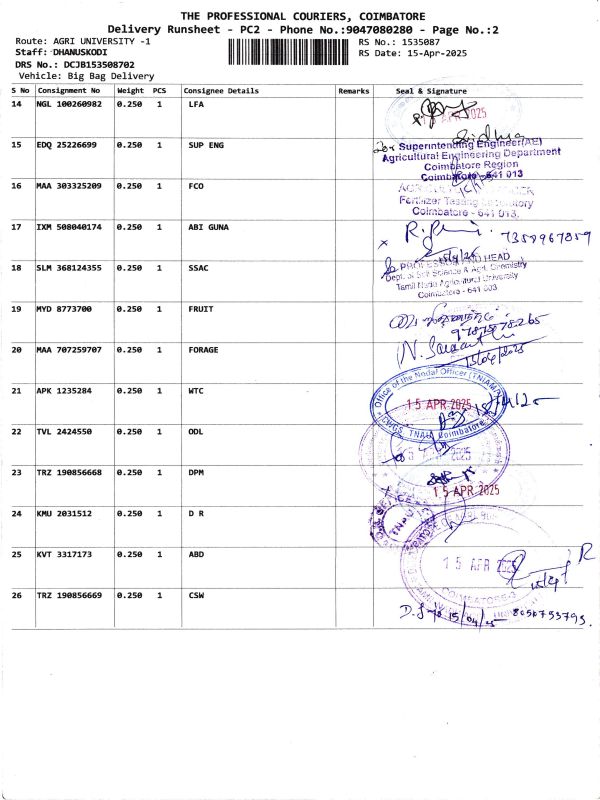 THE PROFESSIONAL COURIERS, COIMBATORE
Delivery Runsheet - PC2 - Phone No.:9047080280 - Page No.:2
Route: AGRI UNIVERSITY -1
RS No.: 1535087
Staff: DHANUSKODI
RS Date: 15-Apr-2025
DRS No.: DCJB153508702
Vehicle: Big Bag Delivery
S No Consignment No Weight PCS Consignee Details Remarks Seal & Signature
14 NGL 100260982 0.250 1 LFA
APR 2025
15 EDQ 25226699 0.250 1 SUP ENG
Superintending Engineer(AE)
Agricultural Engineering Department
Coimbatore Region
Coimbatore - 641 013
16 MAA 303325209 0.250 1 FCO
Fertilizer Testing Laboratory
Coimbatore - 641 013.
17 IXM 508040174 0.250 1 ABI GUNA
7358967859
18 SLM 368124355 0.250 1 SSAC
PROFESSOR AND HEAD
Dept. of Soil Science & Agrl. Chemistry
Tamil Nadu Agricultural University
Coimbatore - 641 003
19 MYD 8773700 0.250 1 FRUIT
20 MAA 707259707 0.250 1 FORAGE
15/04/2025
21 APK 1235284 0.250 1 WTC
Office of the Nodal Officer (TNIAMP)
15 APR 2025
CWGS, TNAU, Coimbatore
22 TVL 2424550 0.250 1 ODL
2025
23 TRZ 190856668 0.250 1 DPM
15 APR 2025
24 KMU 2031512 0.250 1 D R
25 KVT 3317173 0.250 1 ABD
15 APR 2025
COIMBATORE-3
26 TRZ 190856669 0.250 1 CSW
15/04/25